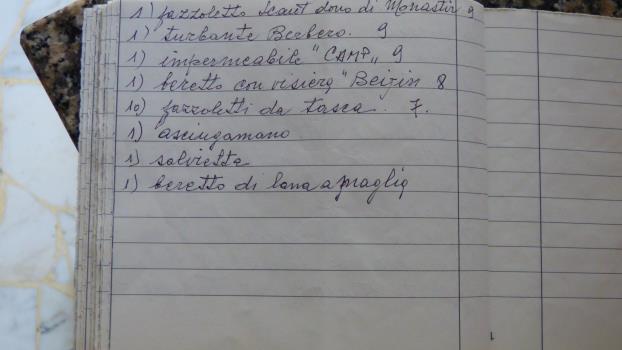 1) fazzoletto Scaut dono di Monastir 9
1) turbante Berbero. 9
1) impermeabile "CAMP„ 9
1) beretto con visiera "Beijin 8
10) fazzoletti da tasca. 7.
1) asciugamano
1) salvietta
1) beretto di lana a maglia